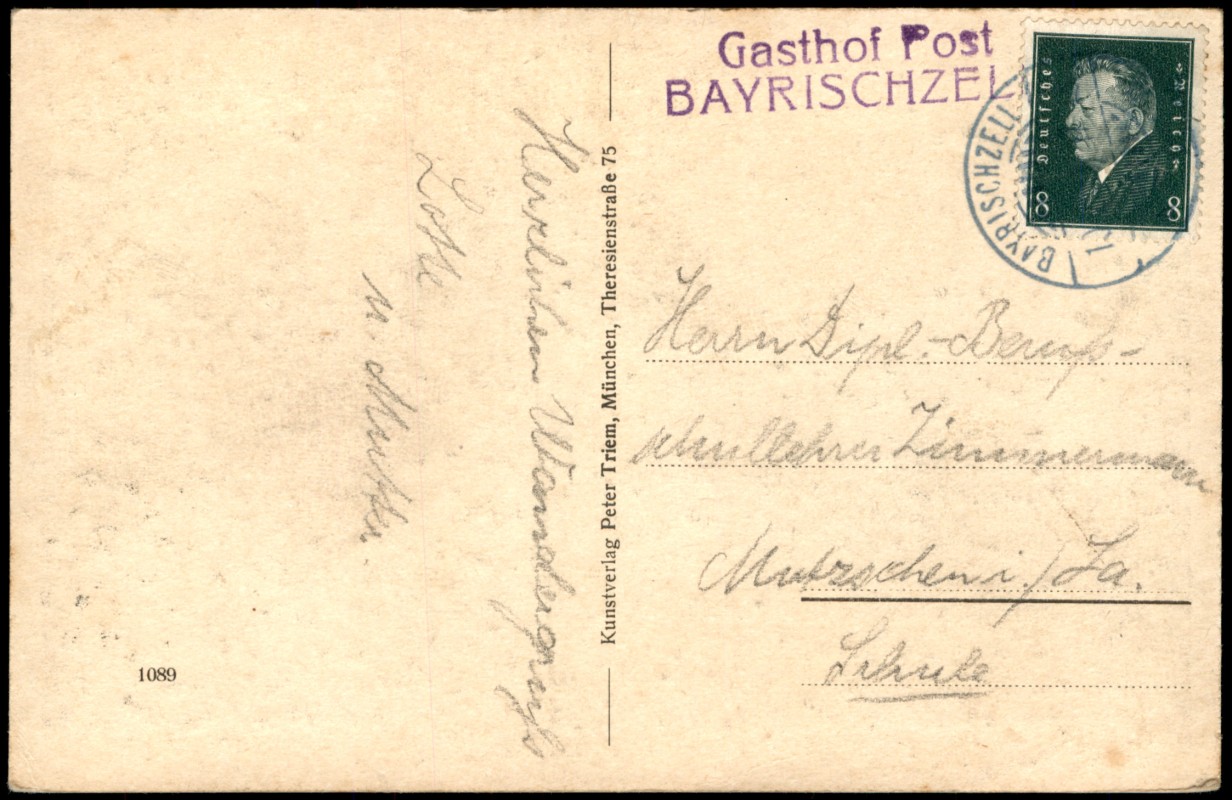 Gasthof Post
BAYRISCHZEL
BAYRISCHZELL
Deutsches
Reich
8 8
Herzlichen Wandergruß
Lotte
u. Mutter.
Kunstverlag Peter Triem, München, Theresienstraße 75
Herrn Dipl.-Berufs-
schullehrer Zimmermann
Mutzschen i./Sa.
Schule
1089